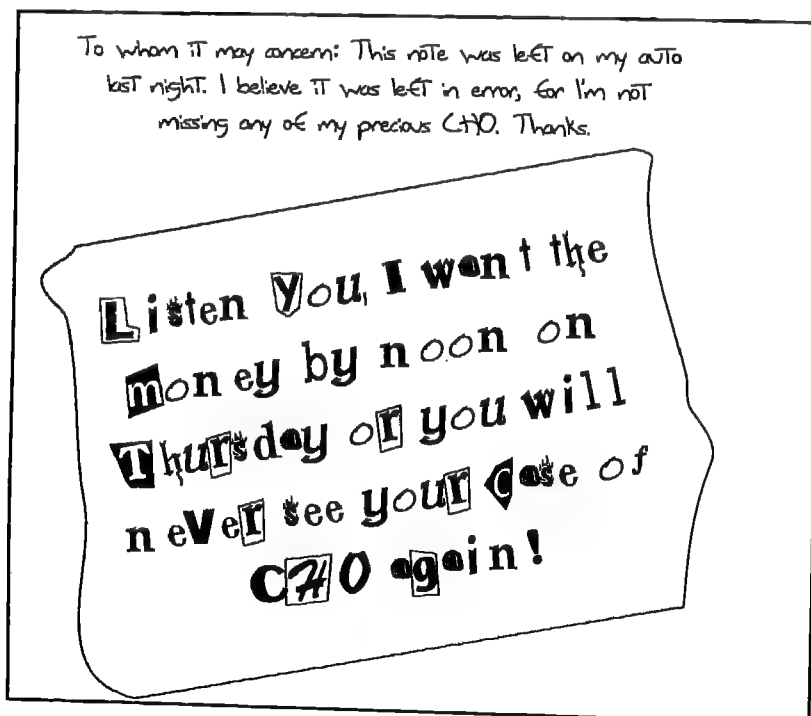 To whom it may concern: This note was left on my auto
last night. I believe it was left in error, for I'm not
missing any of my precious CHO. Thanks.
Listen You, I want the
money by noon on
Thursday or you will
never see your Case of
CHO again!